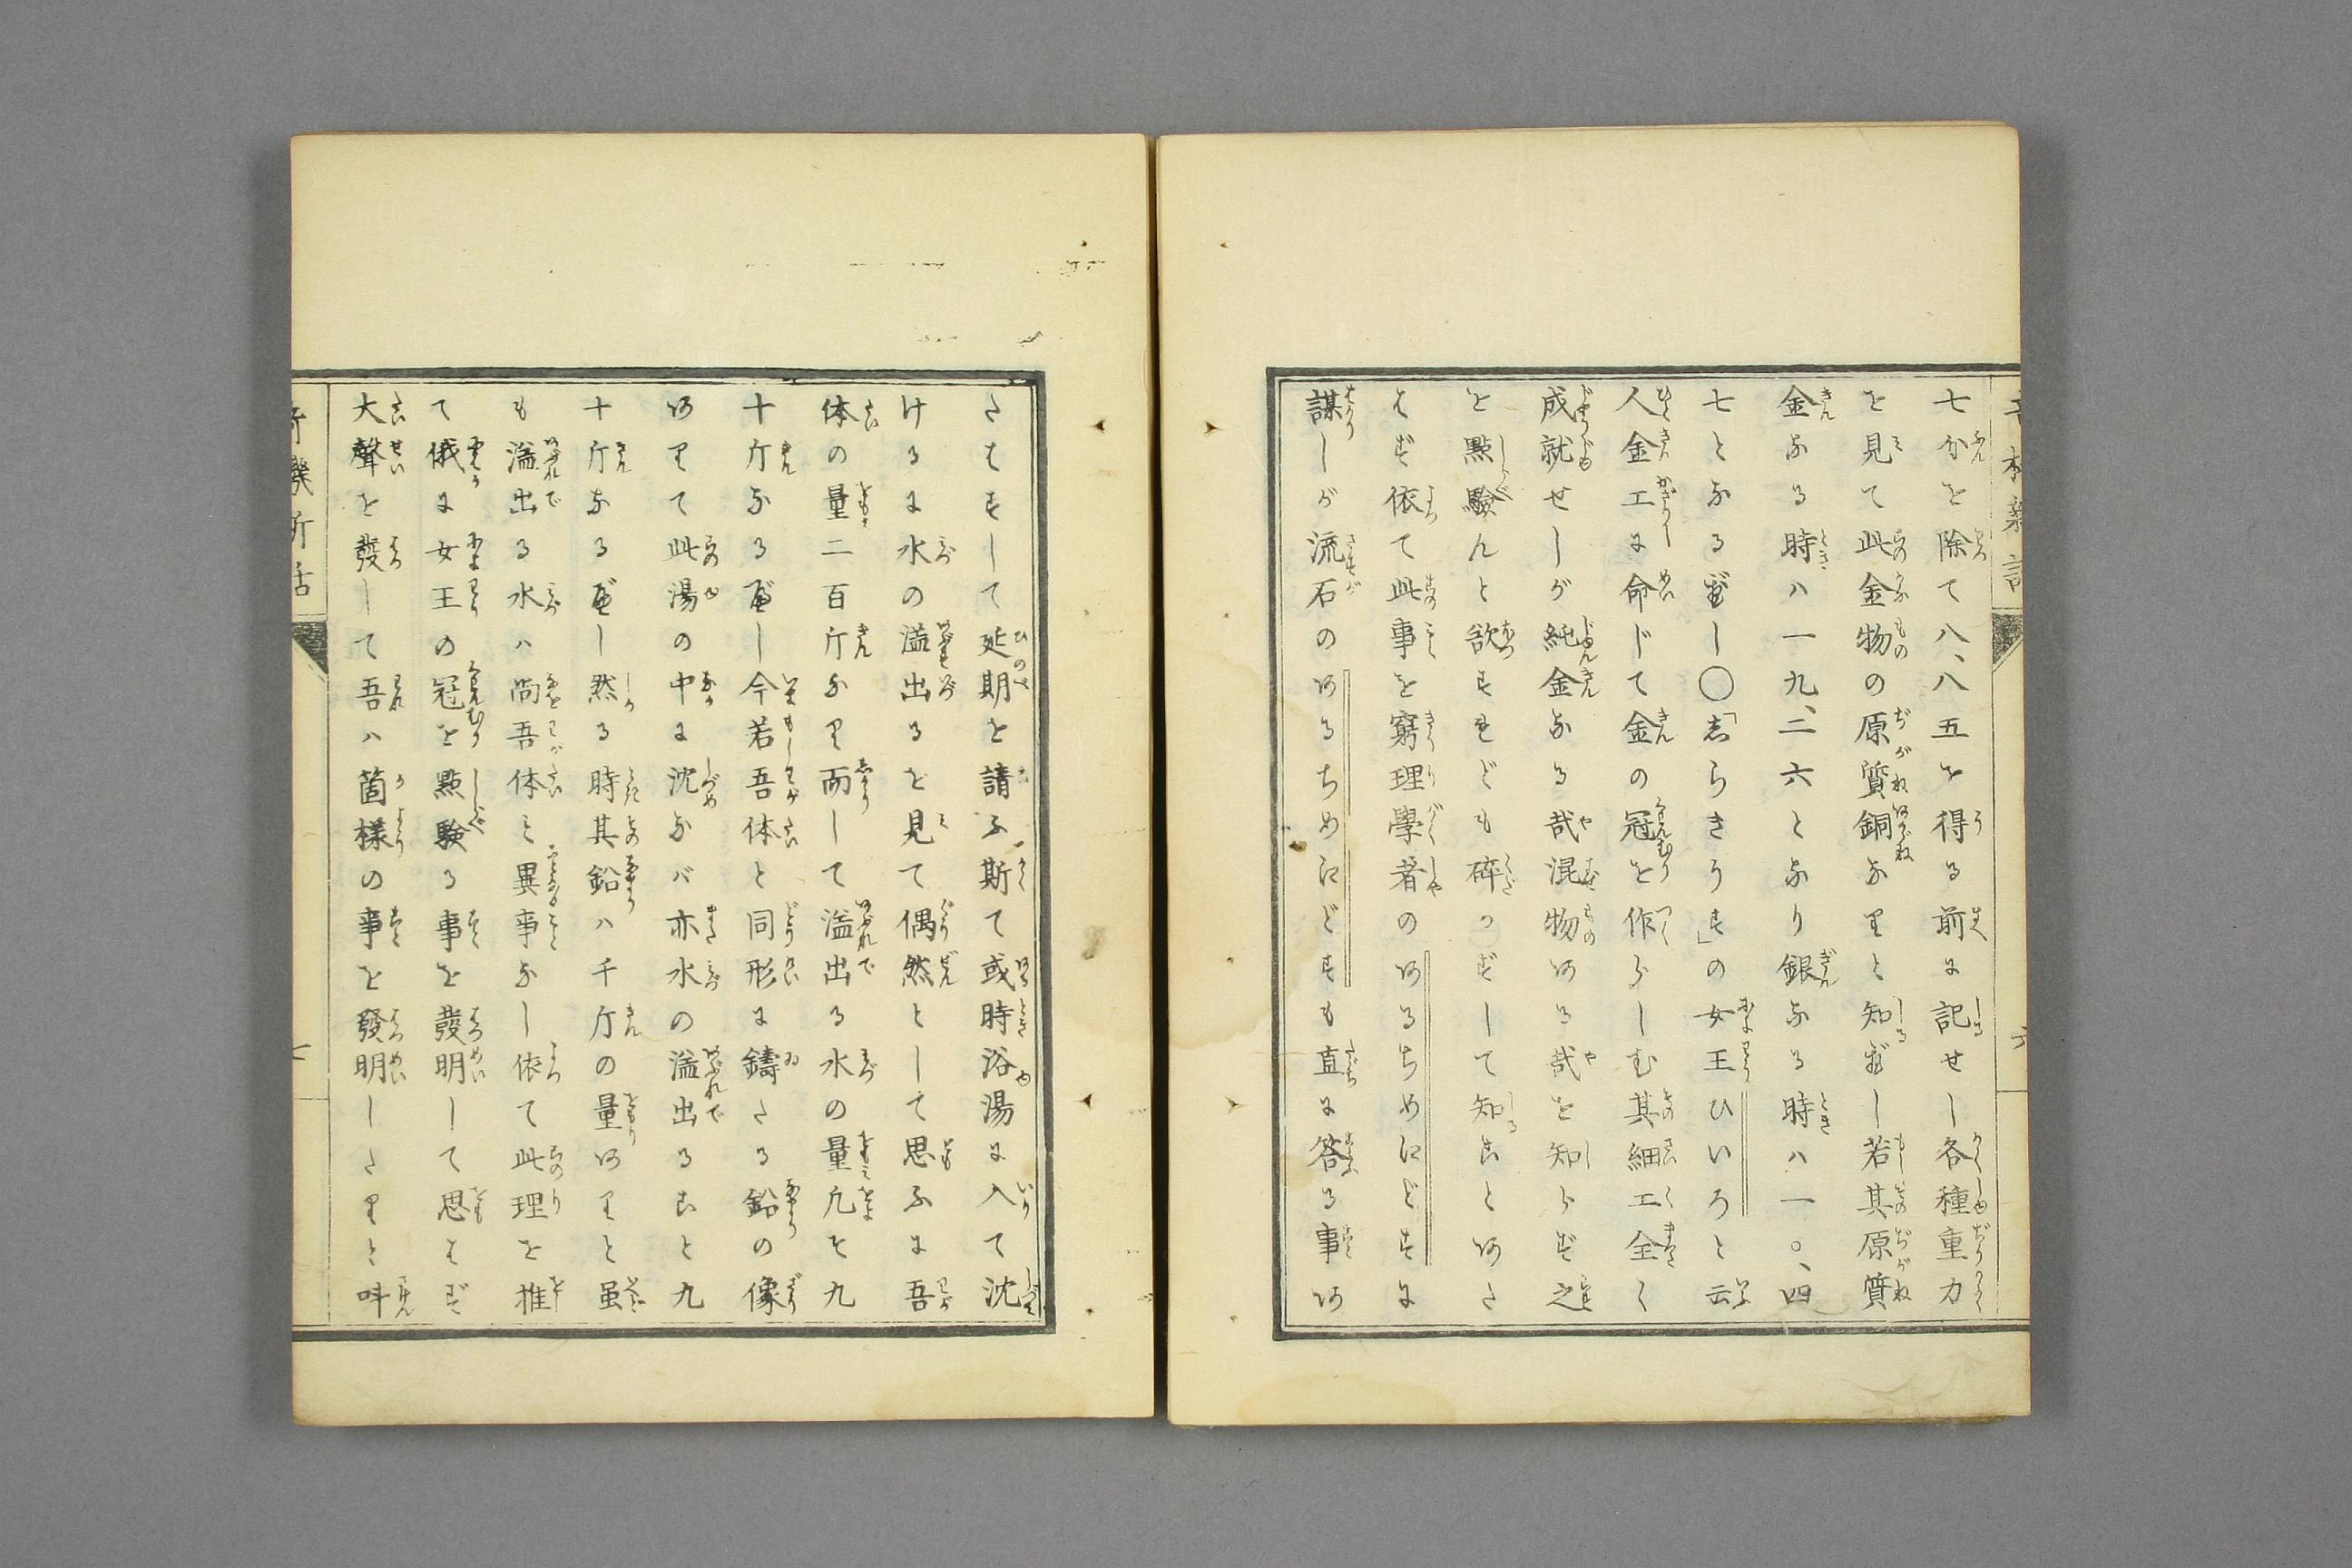 七分を除て八、八五を得る前に記せし各種重力
を見て此金物の原質銅なりと知べし若其原質
金なる時ハ一九、二六となり銀なる時ハ一〇、四
七となるべし〇「志らきうす」の女王ひいろと云
人金工に命じて金の冠を作らしむ其細工全く
成就せしが純金なる哉混物ある哉を知らず之
を點驗んと欲すれども碎かずして知ことあた
はず依て此事を窮理學者のあるちめにどすに
謀しが流石のあるちめにどすも直に答る事あ
たはずして延期を請ふ斯て或時浴湯に入て沈
けるに水の溢出るを見て偶然として思ふに吾
体の量二百斤なり而して溢出る水の量凢そ九
十斤なるべし今若吾体と同形に鑄たる鉛の像
ありて此湯の中に沈なバ亦水の溢出ること九
十斤なるべし然る時其鉛ハ千斤の量ありと虽
も溢出る水ハ尚吾体と異事なし依て此理を推
て俄に女王の冠を點驗る事を發明して思はず
大聲を發して吾ハ箇様の事を發明したりと呌